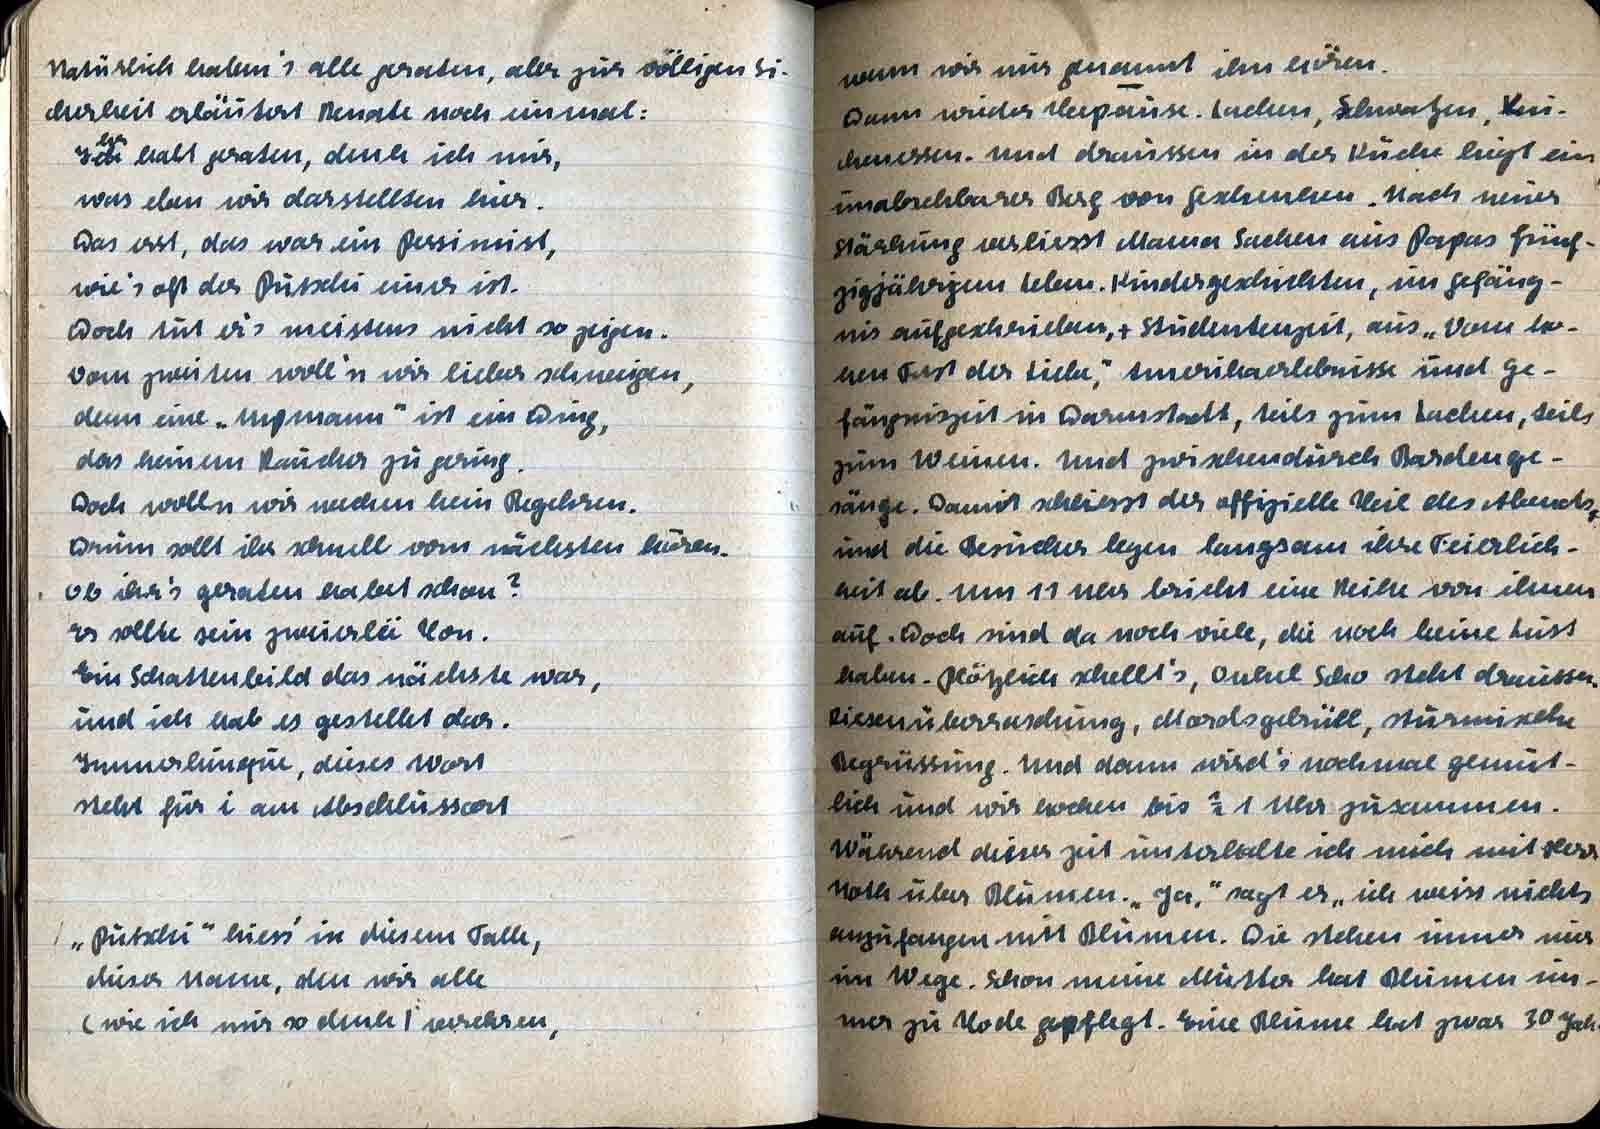 Natürlich haben's alle geraten, aber zur völligen Si-
cherheit erläutert Renate noch einmal:
Ihr habt geraten, denk ich mir,
was eben wir darstellten hier.
Das erst, das war ein Pessimist,
wie's oft der Putschi einer ist.
Doch tut er's meistens nicht so zeigen.
Vom zweiten woll'n wir lieber schweigen,
denn eine „Upmann" ist ein Ding,
das keinem Raucher zu gering.
Doch woll'n wir wecken kein Begehren.
Drum sollt ihr schnell vom nächsten hören.
Ob ihr's geraten habet schon?
Es sollte sein zweierlei Ton.
Ein Schattenbild das nächste war,
und ich hab es gestellet dar.
dieses Wort
steht für i am Abschlussort
„Putschi" hiess' in diesem Falle,
dieser Name, den wir alle
(wie ich mir so denk) verehren,
wenn wir nur genannt ihn hören.
Dann wieder Teepause. Lachen, Schwatzen, Ku-
chenessen. Und draussen in der Küche liegt ein
unabsehbarer Berg von Geschenken. Nach neuer
Stärkung verliesst Mama Sachen aus Papas fünf-
zigjährigem Leben. Kindergeschichten, im Gefäng-
nis aufgeschrieben, + Studentenzeit, aus „Vom ho-
hen Fest der Liebe," Amerikaerlebnisse und Ge-
fängniszeit in Darmstadt, teils zum Lachen, teils
zum Weinen. Und zwischendurch Bardenge-
sänge. Damit schliesst der offizielle Teil des Abends,
und die Besucher legen langsam ihre Feierlich-
keit ab. Um 11 Uhr bricht eine Reihe von ihnen
auf. Doch sind da noch viele, die noch keine Lust
haben. Plötzlich schellt's, Onkel Scho steht draussen.
Riesenüberraschung, Mordsgebrüll, stürmische
Begrüssung. Und dann wird's nochmal gemüt-
lich und wir hocken bis ½ 1 Uhr zusammen.
Während dieser Zeit unterhalte ich mich mit Herr
Noth über Blumen. „Ja," sagt er „ich weiss nichts
anzufangen mit Blumen. Die stehen immer nur
im Wege. Schon meine Mutter hat Blumen im-
mer zu Tode gepflegt. Eine Blume hat zwar 30 Jah-